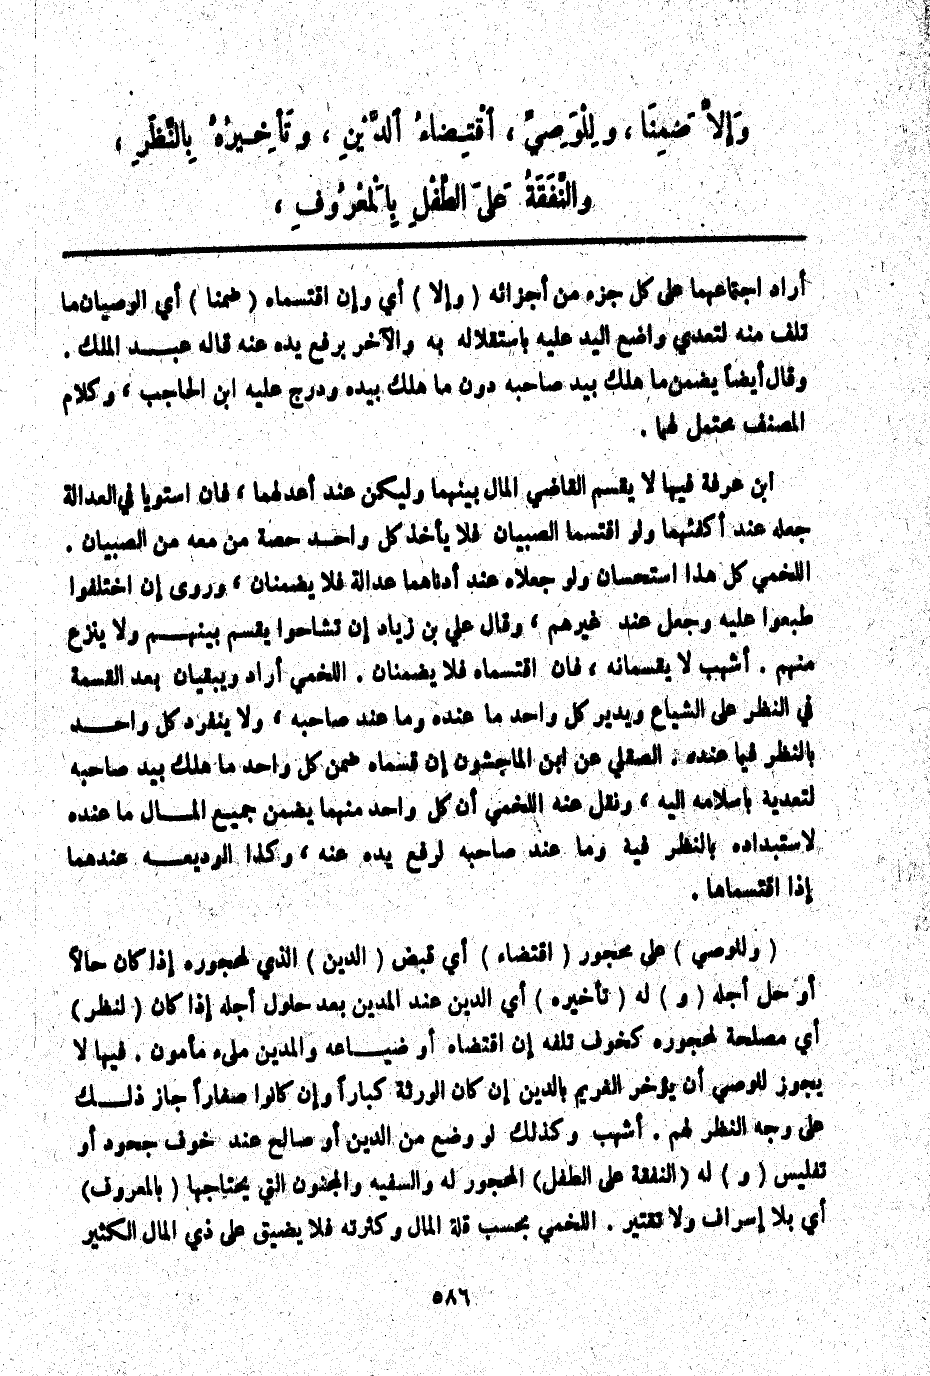 وَإِلاَّ ضَمِنَا ، وِلِلْوَصِيِّ ، ٱقْتِضَاءُ ٱلدَّيْنِ ، وتَأْخِيرُهُ بِالنَّظَرِ ،
والنَّفَقَةُ عَلَى الطِّفْلِ بِالْمَعْرُوفِ ،
أراد اجتماعهما على كل جزء من أجزائه ( وإلا ) أي وإن اقتسماه ( ضمنا ) أي الوصيان ما
تلف منه لتعدي واضع اليد عليه باستقلاله به والآخر برفع يده عنه قاله عبـــد الملك .
وقال أيضاً يضمن ما هلك بيد صاحبه دون ما هلك بيده ودرج عليه ابن الحاجب ، وكلام
المصنف محتمل لهما .
ابن عرفة فيها لا يقسم القاضي المال بينهما وليكن عند أعدلهما ، فان استويا في العدالة
جعله عند أكفئهما ولو اقتسما الصبيان فلا يأخذ كل واحـد حصة من معه من الصبيان .
اللخمي كل هذا استحسان ولو جعلاه عند أدناهما عدالة فلا يضمنان ، وروى إن اختلفوا
طبعوا عليه وجعل عند غيرهم ، وقال علي بن زياد إن تشاحوا يقسم بينهـــم ولا ينزع
منهم . أشهب لا يقسمانه ، فان اقتسماه فلا يضمنان . اللخمي أراد ويبقيان بعد القسمة
في النظر على الشياع ويدير كل واحد ما عنده وما عند صاحبه ، ولا ينفرد كل واحـــد
بالنظر فيما عنده . الصقلي عن ابن الماجشون إن قسماه ضمن كل واحد ما هلك بيد صاحبه
لتعديه باسلامه اليه ، ونقل عنه اللخمي أن كل واحد منهما يضمن جميع المـــال ما عنده
لاستبداده بالنظر فيه وما عند صاحبه لرفع يده عنه ، وكذا الوديعـــه عندهما
إذا اقتسماها .
( وللوصي ) على محجور ( اقتضاء ) أي قبض ( الدين ) الذي لمحجوره إذا كان حالاً
أو حل أجله ( و ) له ( تأخيره ) أي الدين عند المدين بعد حلول أجله إذا كان ( لنظر )
أي مصلحة لمحجوره كخوف تلفه إن اقتضاه أو ضيـــاعه والمدين ملىء مأمون . فيها لا
يجوز للوصي أن يؤخر الغريم بالدين إن كان الورثة كباراً وإن كانوا صغاراً جاز ذلـــك
على وجه النظر لهم . أشهب وكذلك لو وضع من الدين أو صالح عند خوف جحود أو
تفليس ( و ) له (النفقة على الطفل) المحجور له والسفيه والمجنون التي يحتاجها ( بالمعروف)
أي بلا إسراف ولا تقتير . اللخمي بحسب قلة المال وكثرته فلا يضيق على ذي المال الكثير
٥٨٦